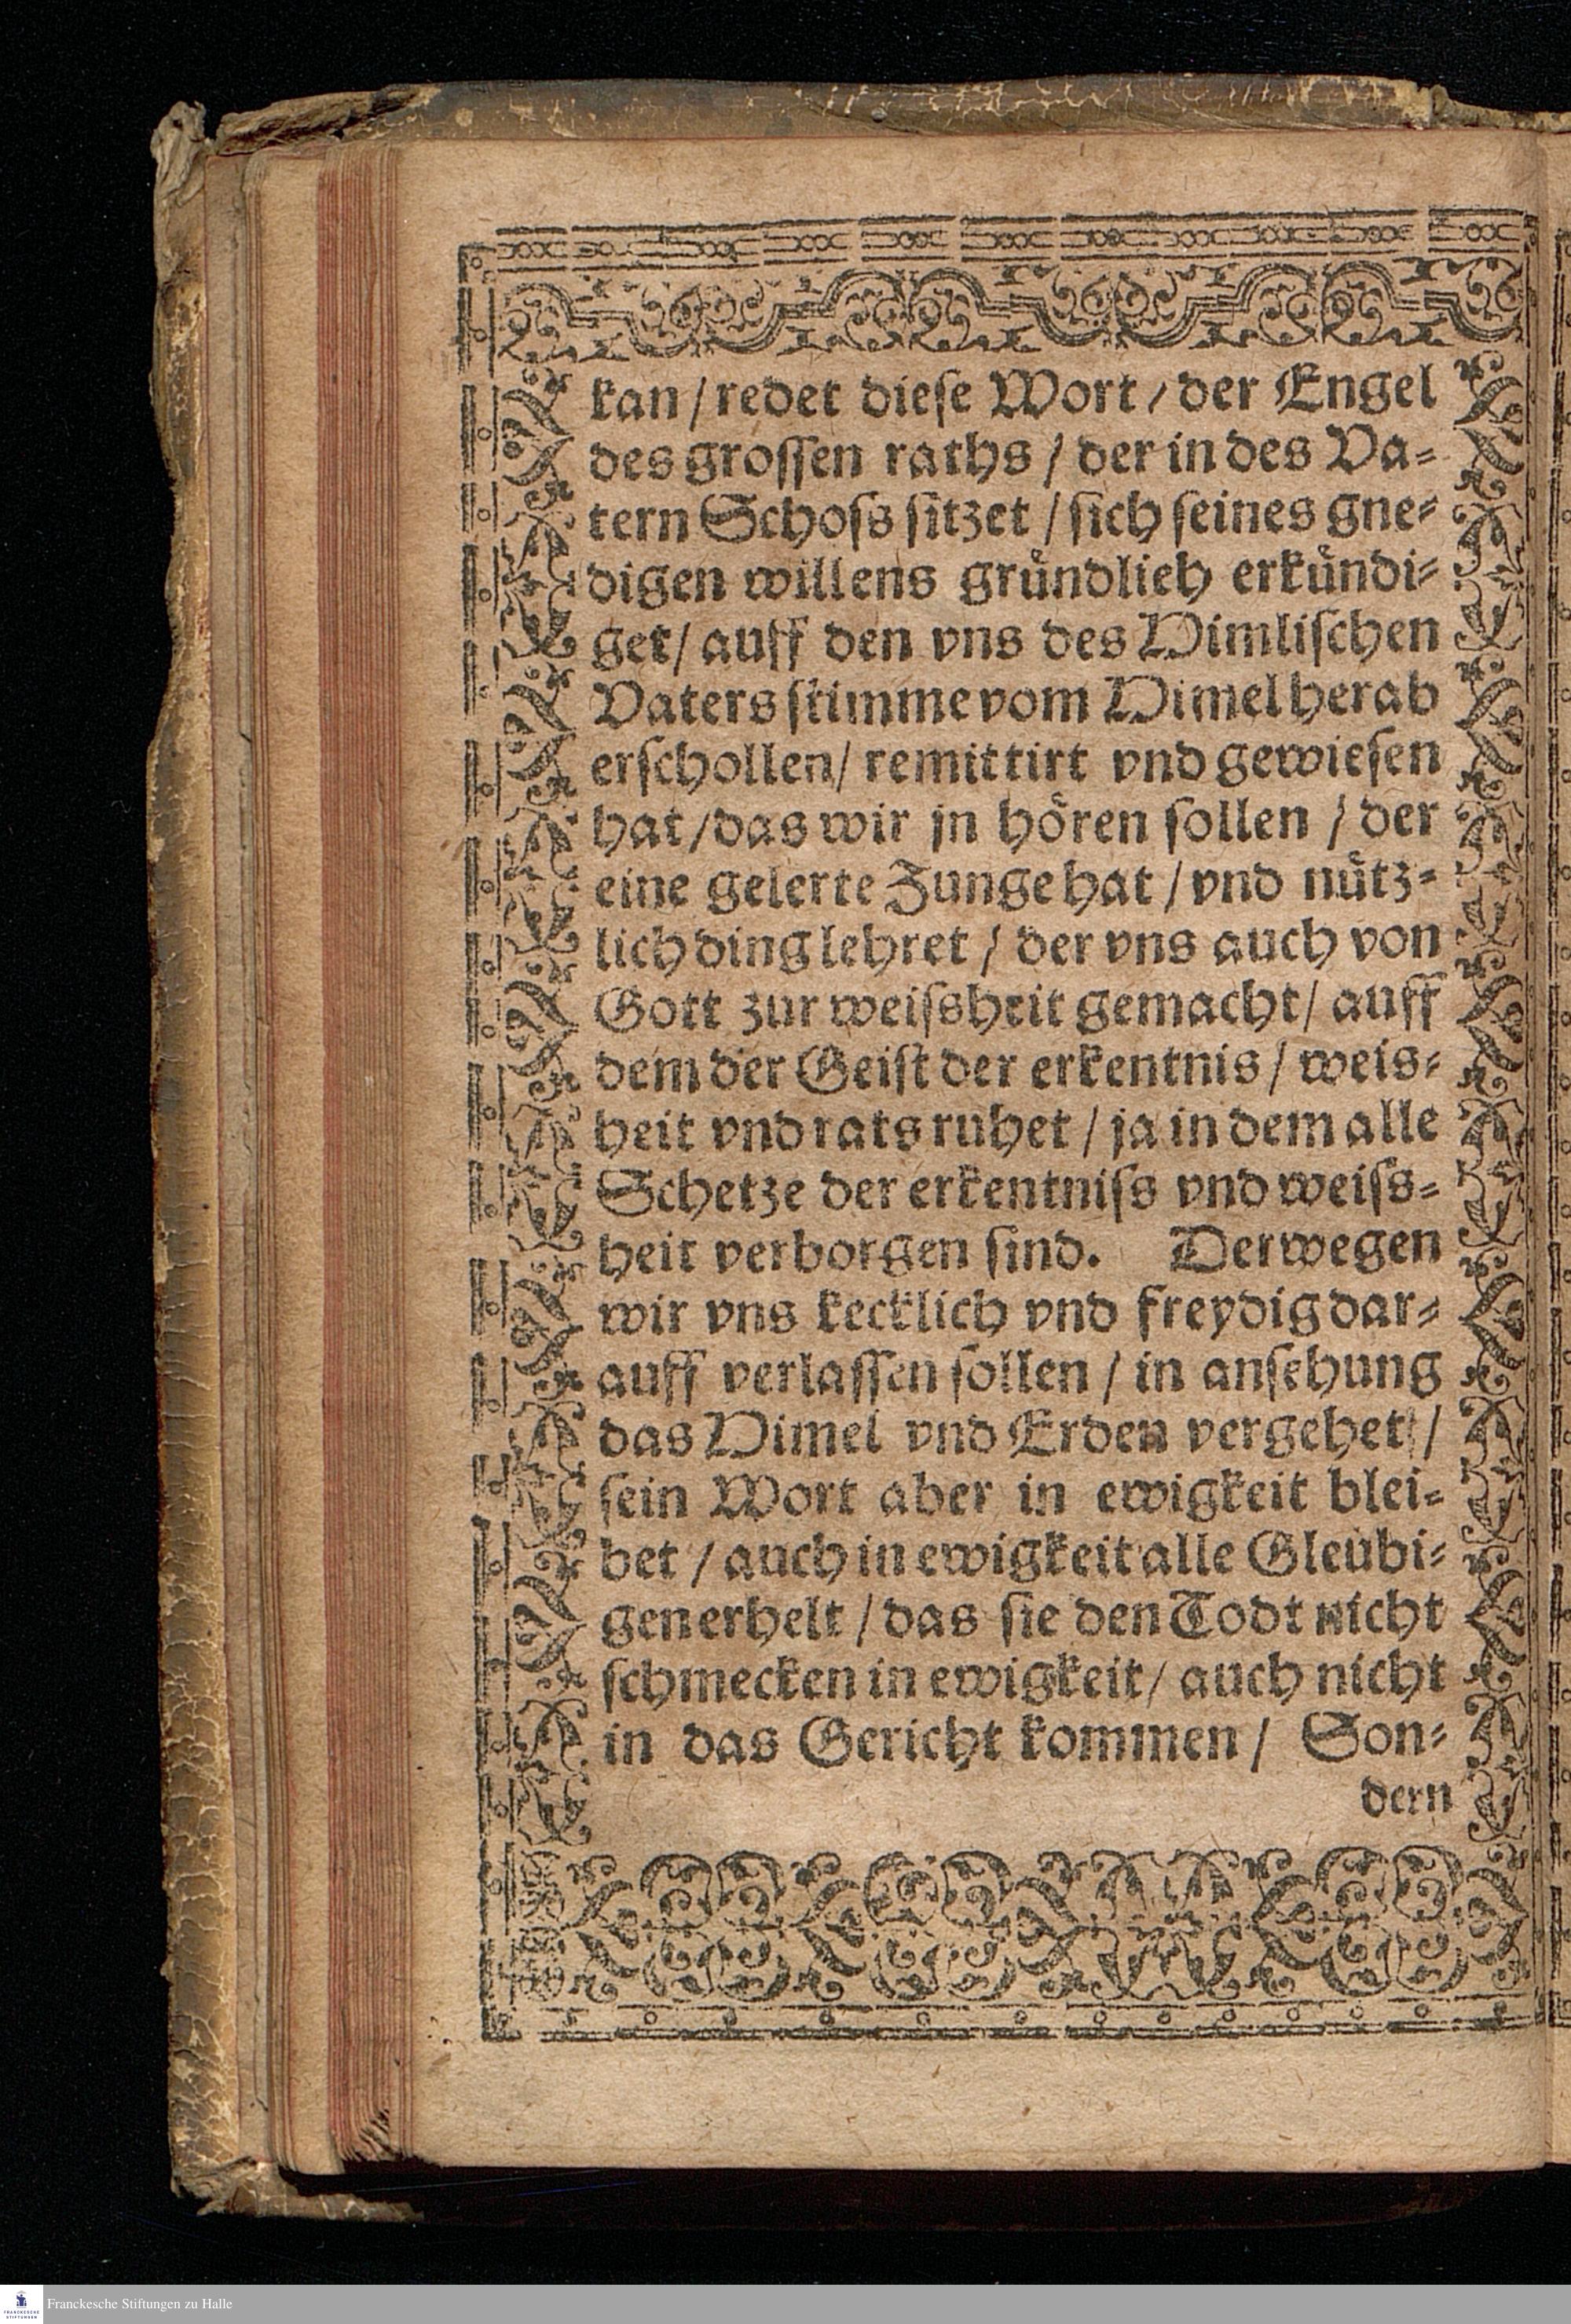 kan / redet dieſe Wort / der Engel
des groſſen raths / der in des Va⸗
tern Schoſs ſitzet / ſich ſeines gne⸗
digen willens gruͤndlich erkuͤndi⸗
get / auff den vns des Himliſchen
Vaters ſtimme vom Himel herab
erſchollen / remittirt vnd gewieſen
hat / das wir jn hoͤren ſollen / der
eine gelerte Zunge hat / vnd nuͤtz⸗
lich ding lehret / der vns auch von
Gott zur weiſsheit gemacht / auff
dem der Geiſt der erkentnis / weis⸗
heit vnd rats ruhet / ja in dem alle
Schetze der erkentniſs vnd weiſs⸗
heit verborgen ſind. Derwegen
wir vns kecklich vnd freydig dar⸗
auff verlaſſen ſollen / in anſehung
das Himel vnd Erden vergehet /
ſein Wort aber in ewigkeit blei⸗
bet / auch in ewigkeit alle Gleubi⸗
gen erhelt / das ſie den Todt nicht
ſchmecken in ewigkeit / auch nicht
in das Gericht kommen / Son⸗
dern
FRANCKESCHE STIFTUNGEN
Franckesche Stiftungen zu Halle